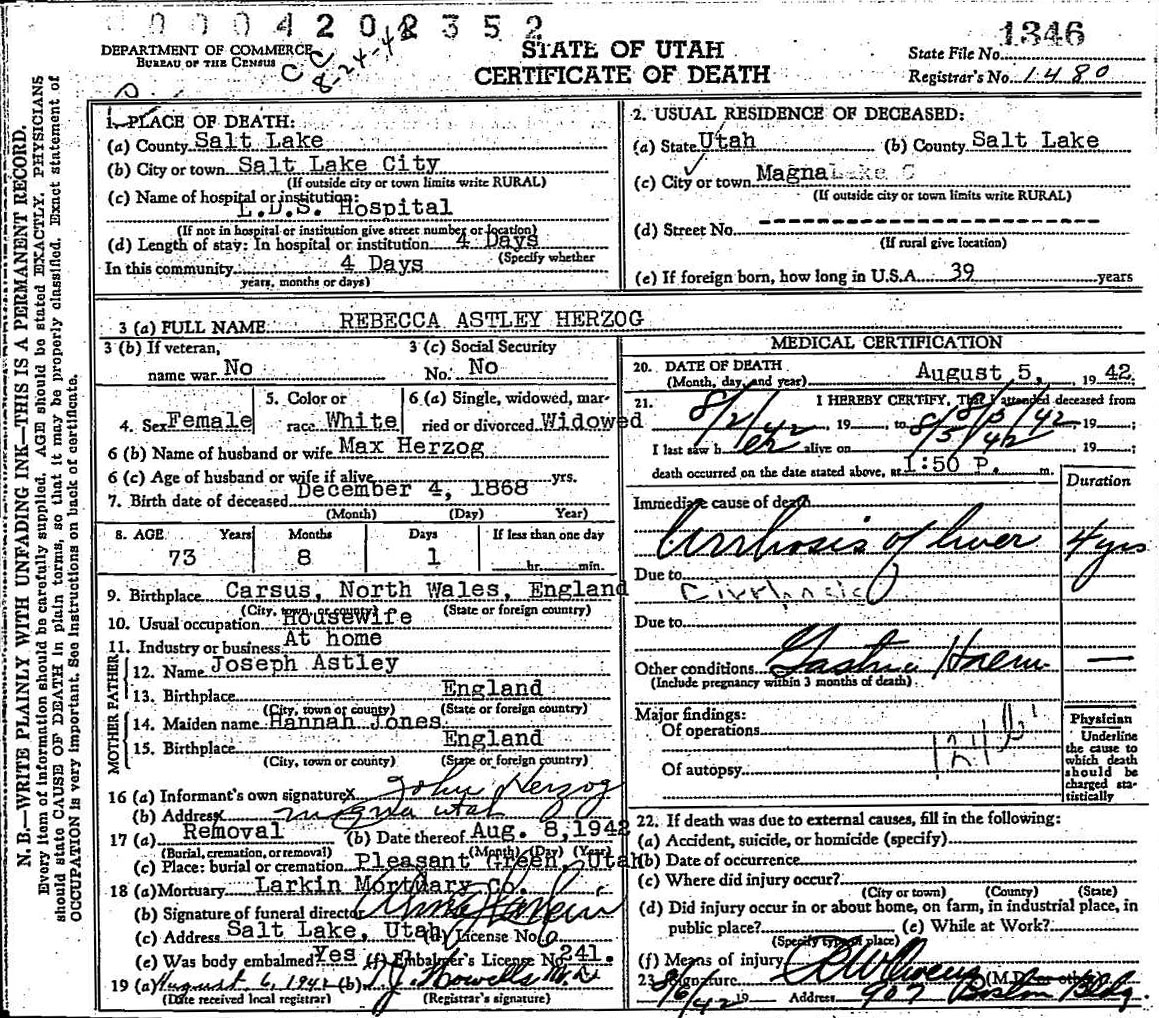 0000420 2352
1346
DEPARTMENT OF COMMERCE
BUREAU OF THE CENSUS
CC
8-24-42
STATE OF UTAH
CERTIFICATE OF DEATH
State File No.
Registrar's No. 1480
N. B.—WRITE PLAINLY WITH UNFADING INK—THIS IS A PERMANENT RECORD.
Every item of information should be carefully supplied. AGE should be stated EXACTLY. PHYSICIANS
should state CAUSE OF DEATH in plain terms, so that it may be properly classified. Exact statement of
OCCUPATION is very important. See Instructions on back of certificate.
1. PLACE OF DEATH:
(a) County Salt Lake
(b) City or town Salt Lake City
(If outside city or town limits write RURAL)
(c) Name of hospital or institution:
L.D.S. Hospital
(If not in hospital or institution give street number or location)
(d) Length of stay: In hospital or institution 4 Days
(Specify whether
In this community 4 Days
years, months or days)
2. USUAL RESIDENCE OF DECEASED:
(a) State Utah (b) County Salt Lake
(c) City or town Magna
(If outside city or town limits write RURAL)
(d) Street No. ----------
(If rural give location)
(e) If foreign born, how long in U.S.A. 39 years
3 (a) FULL NAME REBECCA ASTLEY HERZOG
3 (b) If veteran, 3 (c) Social Security
name war No No. No
4. Sex Female 5. Color or race White 6 (a) Single, widowed, mar-
ried or divorced Widowed
6 (b) Name of husband or wife Max Herzog
6 (c) Age of husband or wife if alive yrs.
7. Birth date of deceased December 4, 1868
(Month) (Day) Year)
8. AGE Years Months Days If less than one day
73 8 1 hr. min.
9. Birthplace Carsus, North Wales, England
(City, town, or county) (State or foreign country)
10. Usual occupation Housewife
11. Industry or business At home
FATHER
12. Name Joseph Astley
13. Birthplace England
(City, town or county) (State or foreign country)
MOTHER
14. Maiden name Hannah Jones
15. Birthplace England
(City, town or county) (State or foreign country)
16 (a) Informant's own signature x John Herzog
(b) Address x Magna Utah
17 (a) Removal (b) Date thereof Aug. 8, 1942
(Burial, cremation, or removal) (Month) (Day) (Year)
(c) Place: burial or cremation Pleasant Green, Utah
18 (a) Mortuary Larkin Mortuary Co.
(b) Signature of funeral director
(c) Address Salt Lake, Utah (d) License No.
(e) Was body embalmed? Yes (f) Embalmer's License No. 241.
19 (a) August 6, 1942 (b) T. J. Howells M. D.
(Date received local registrar) (Registrar's signature)
MEDICAL CERTIFICATION
20. DATE OF DEATH
(Month, day, and year) August 5, 1942.
21. I HEREBY CERTIFY, That I attended deceased from
8/2/42, 19 , to 8/5/42, 19 ;
I last saw h er alive on 8/5/42, 19 ;
death occurred on the date stated above, at 1:50 P. m.
Duration
Immediate cause of death
Cirrhosis of liver 4 yrs
Due to Cirrhosis
Due to
Other conditions Gastric Haem —
(Include pregnancy within 3 months of death).
Major findings:
Of operations
Of autopsy
124 b
Physician
Underline
the cause to
which death
should be
charged sta-
tistically
22. If death was due to external causes, fill in the following:
(a) Accident, suicide, or homicide (specify)
(b) Date of occurrence
(c) Where did injury occur?
(City or town) (County) (State)
(d) Did injury occur in or about home, on farm, in industrial place, in
public place? (e) While at Work?
(Specify type of place)
(f) Means of injury
23. Signature (M.D. or other)
8/6/42 19 Address 907 Boston Bldg.